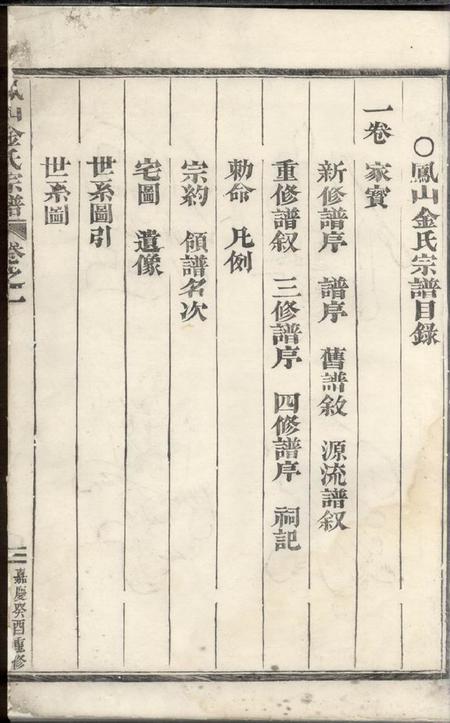 ○鳳山金氏宗譜目錄
一卷 家寶
新修譜序 譜序 舊譜敘 源流譜叙
重修譜叙 三修譜序 四修譜序 祠記
勅命 凡例
宗約 領譜名次
宅圖 遺像
世系圖引
世系圖
鳳山金氏宗譜 卷之一
嘉慶癸酉重修